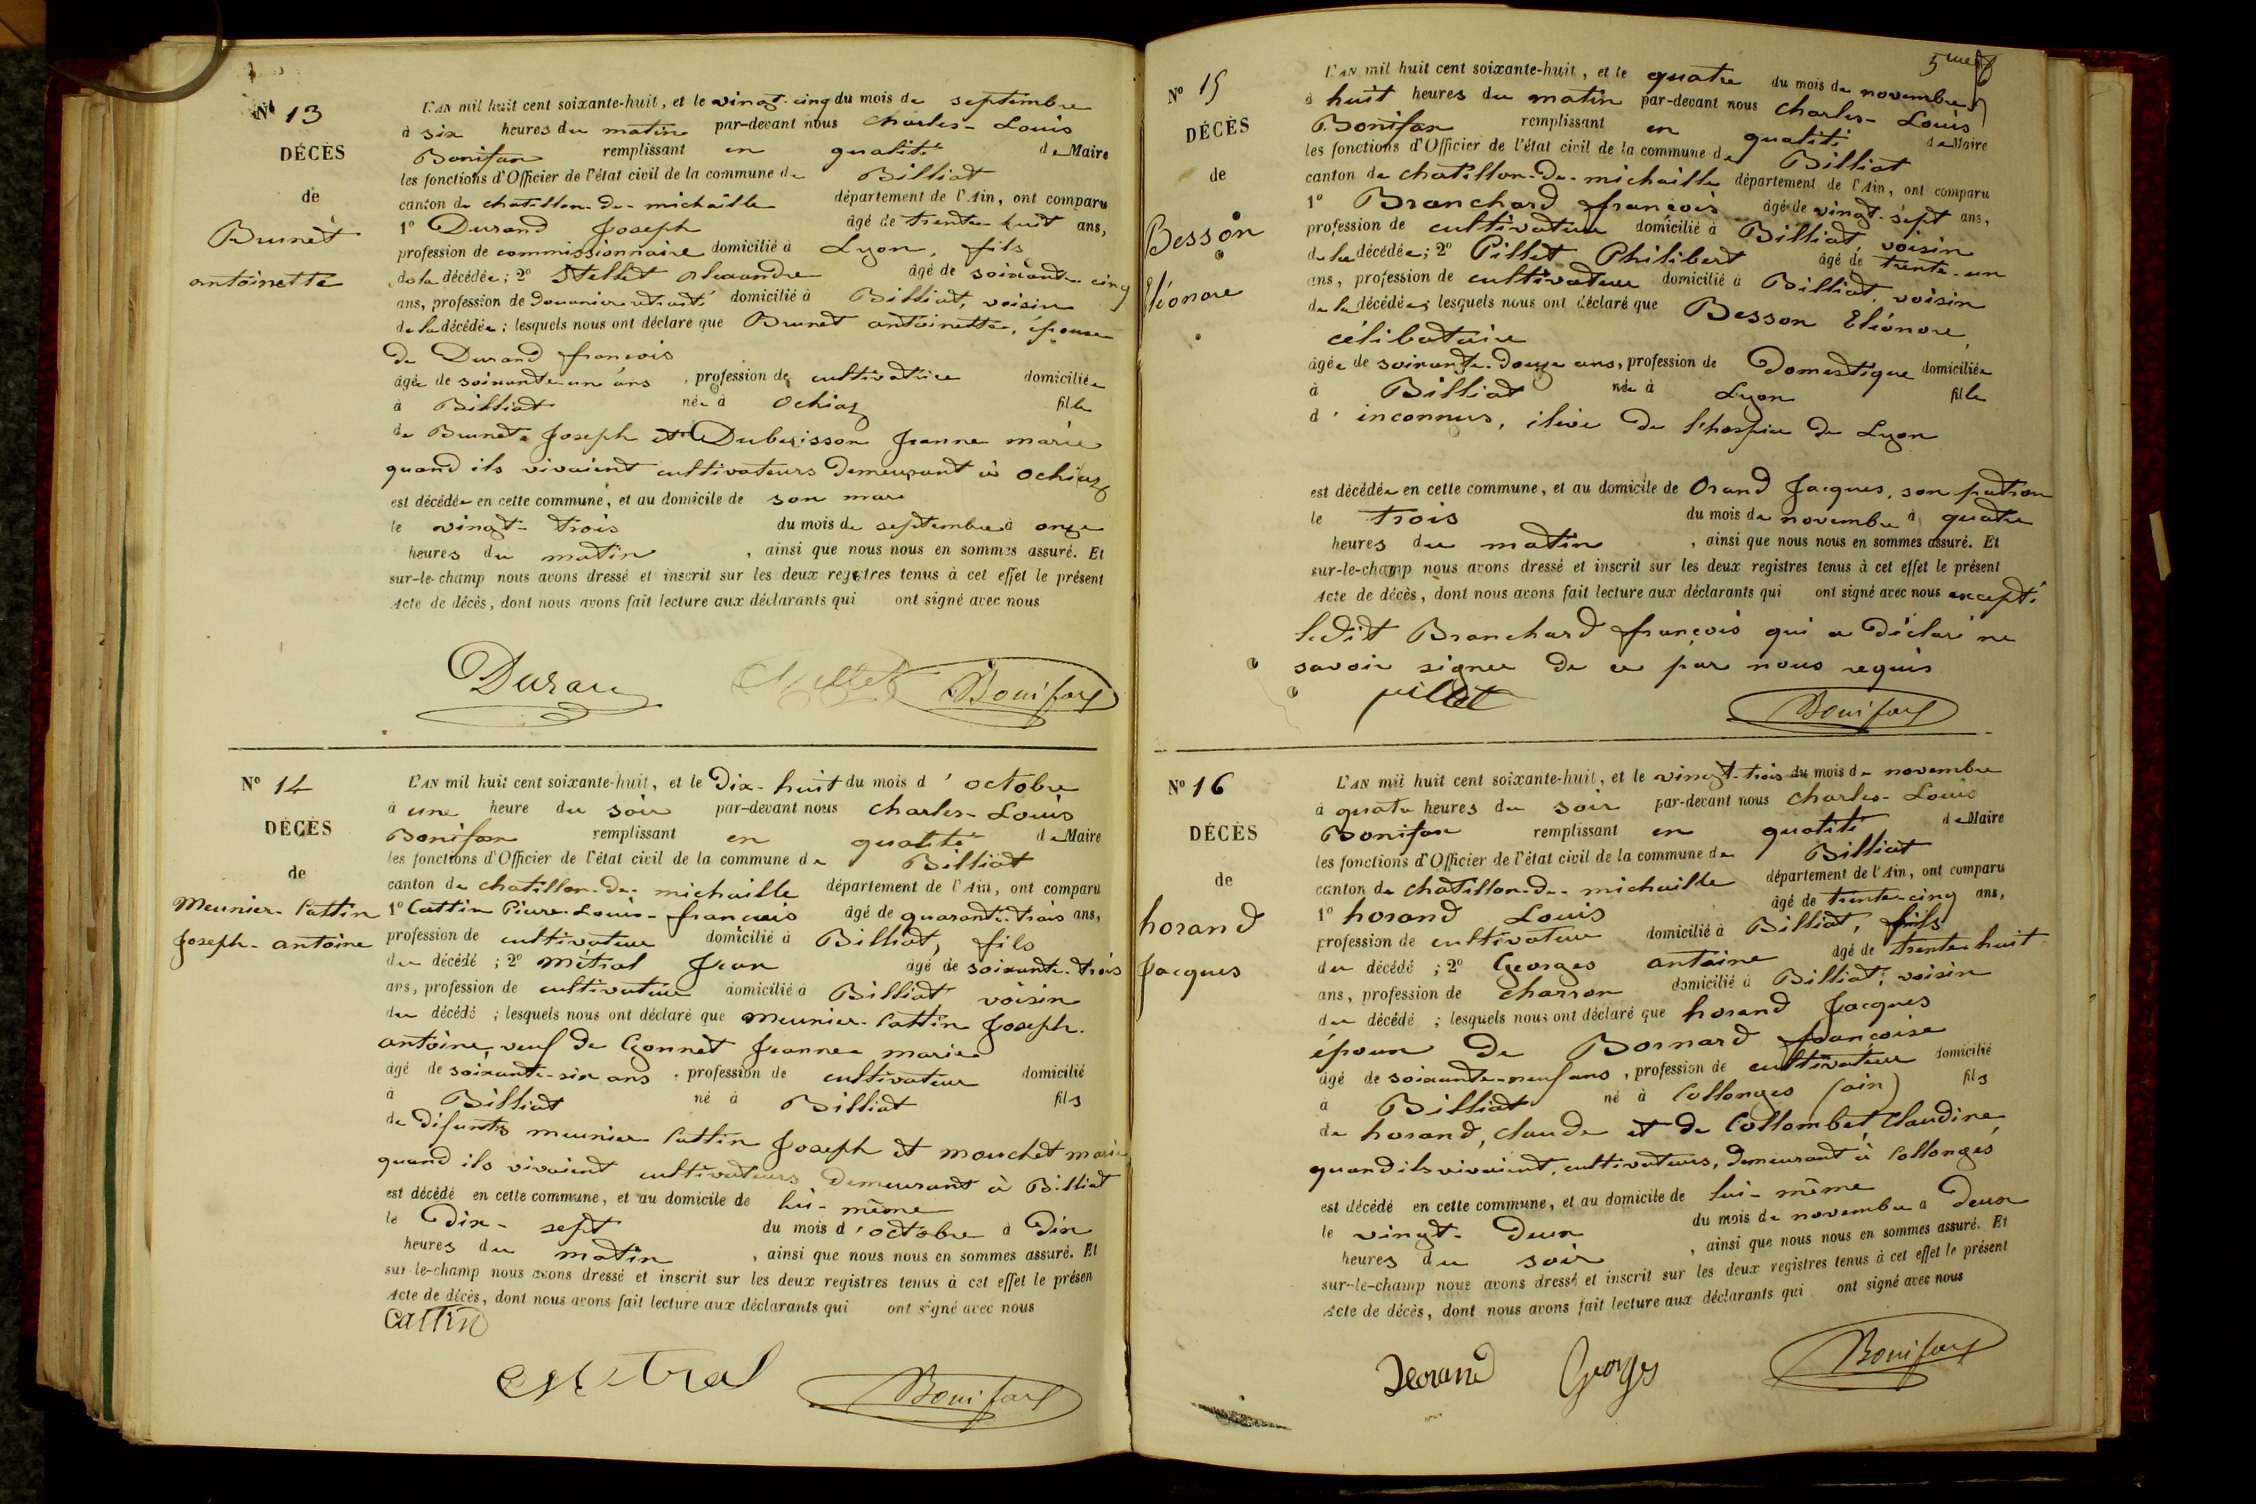 Nº 13
DÉCÈS
de
Brunet
antoinette
L'AN mil huit cent soixante-huit, et le vingt-cinq du mois de septembre
à six heures du matin par-devant nous Charles-Louis
Bonifax remplissant en qualité de Maire
les fonctions d'Officier de l'état civil de la commune de Billiat
canton de chatillon-de-michaille département de l'Ain, ont comparu
1º Durand Joseph âgé de trente huit ans,
profession de commissionnaire domicilié à Lyon, fils
de la décédée; 2º âgé de soixante cinq
ans, profession de Douanier retraité domicilié à Billiat, voisin
de la décédée; lesquels nous ont déclaré que Brunet antoinette, épouse
de Durand françois
âgée de soixante-un ans, profession de cultivatrice domiciliée
à Billiat née à Ochiaz fille
de Brunet Joseph et Duberisson Jeanne marie
quand ils vivaient cultivateurs demeurant à Ochiaz
est décédée en cette commune, et au domicile de son mari
le vingt-trois du mois de septembre à onze
heures du matin, ainsi que nous nous en sommes assuré. Et
sur-le-champ nous avons dressé et inscrit sur les deux registres tenus à cet effet le présent
Acte de décès, dont nous avons fait lecture aux déclarants qui ont signé avec nous
Duran Bonifax
Nº 14
DÉCÈS
de
Meunier-Cattin
Joseph-antoine
L'AN mil huit cent soixante-huit, et le Dix-huit du mois d'octobre
à une heure du soir par-devant nous Charles-Louis
Bonifax remplissant en qualité de Maire
les fonctions d'Officier de l'état civil de la commune de Billiat
canton de chatillon-de-michaille département de l'Ain, ont comparu
1º Cattin Pierre-Louis-françois âgé de quarante-trois ans,
profession de cultivateur domicilié à Billiat, fils
du décédé; 2º métral Jean âgé de soixante-trois
ans, profession de cultivateur domicilié à Billiat voisin
du décédé; lesquels nous ont déclaré que meunier-Cattin Joseph-
antoine, veuf de Gonnet Jeanne marie
âgé de soixante-six ans, profession de cultivateur domicilié
à Billiat né à Billiat fils
de défunts meunier Cattin Joseph et mouchet marie
quand ils vivaient cultivateurs demeurant à Billiat
est décédé en cette commune, et au domicile de lui-même
le Dix-sept du mois d'octobre à Dix
heures du matin, ainsi que nous nous en sommes assuré. Et
sur-le-champ nous avons dressé et inscrit sur les deux registres tenus à cet effet le présen
Acte de décès, dont nous avons fait lecture aux déclarants qui ont signé avec nous
Cattin
Métral Bonifax
5me
Nº 15
DÉCÈS
de
Besson
Eléonore
L'AN mil huit cent soixante-huit, et le quatre du mois de novembre
à huit heures du matin par-devant nous Charles-Louis
Bonifax remplissant en qualité de Maire
les fonctions d'Officier de l'état civil de la commune de Billiat
canton de chatillon-de-michaille département de l'Ain, ont comparu
1º Branchard françois âgé de vingt-sept ans,
profession de cultivateur domicilié à Billiat, voisin
de la décédée; 2º Pillet Philibert âgé de trente-un
ans, profession de cultivateur domicilié à Billiat, voisin
de la décédée; lesquels nous ont déclaré que Besson Eléonore,
célibataire
âgée de soixante-douze ans, profession de Domestique domiciliée
à Billiat née à Lyon fille
d'inconnus, élève de l'hospice de Lyon
est décédée en cette commune, et au domicile de Orand Jacques, son patron
le trois du mois de novembre à quatre
heures du matin, ainsi que nous nous en sommes assuré. Et
sur-le-champ nous avons dressé et inscrit sur les deux registres tenus à cet effet le présent
Acte de décès, dont nous avons fait lecture aux déclarants qui ont signé avec nous excepté
ledit Branchard françois qui a déclaré ne
savoir signer de ce par nous requis
pillet Bonifax
Nº 16
DÉCÈS
de
horand
Jacques
L'AN mil huit cent soixante-huit, et le vingt-trois du mois de novembre
à quatre heures du soir par-devant nous Charles-Louis
Bonifax remplissant en qualité de Maire
les fonctions d'Officier de l'état civil de la commune de Billiat
canton de chatillon-de-michaille département de l'Ain, ont comparu
1º horand Louis âgé de trente-cinq ans,
profession de cultivateur domicilié à Billiat, fils
du décédé; 2º Georges antoine âgé de trente huit
ans, profession de charron domicilié à Billiat, voisin
du décédé; lesquels nous ont déclaré que horand Jacques
époux de Bornard françoise
âgé de soixante-neuf ans, profession de cultivateur domicilié
à Billiat né à Collonges (ain) fils
de horand, claude et de Collombet, Claudine,
quand ils vivaient, cultivateurs, demeurant à Collonges
est décédé en cette commune, et au domicile de lui-même
le vingt-deux du mois de novembre à Deux
heures du soir, ainsi que nous nous en sommes assuré. Et
sur-le-champ nous avons dressé et inscrit sur les deux registres tenus à cet effet le présent
Acte de décès, dont nous avons fait lecture aux déclarants qui ont signé avec nous
Horand Georges Bonifax